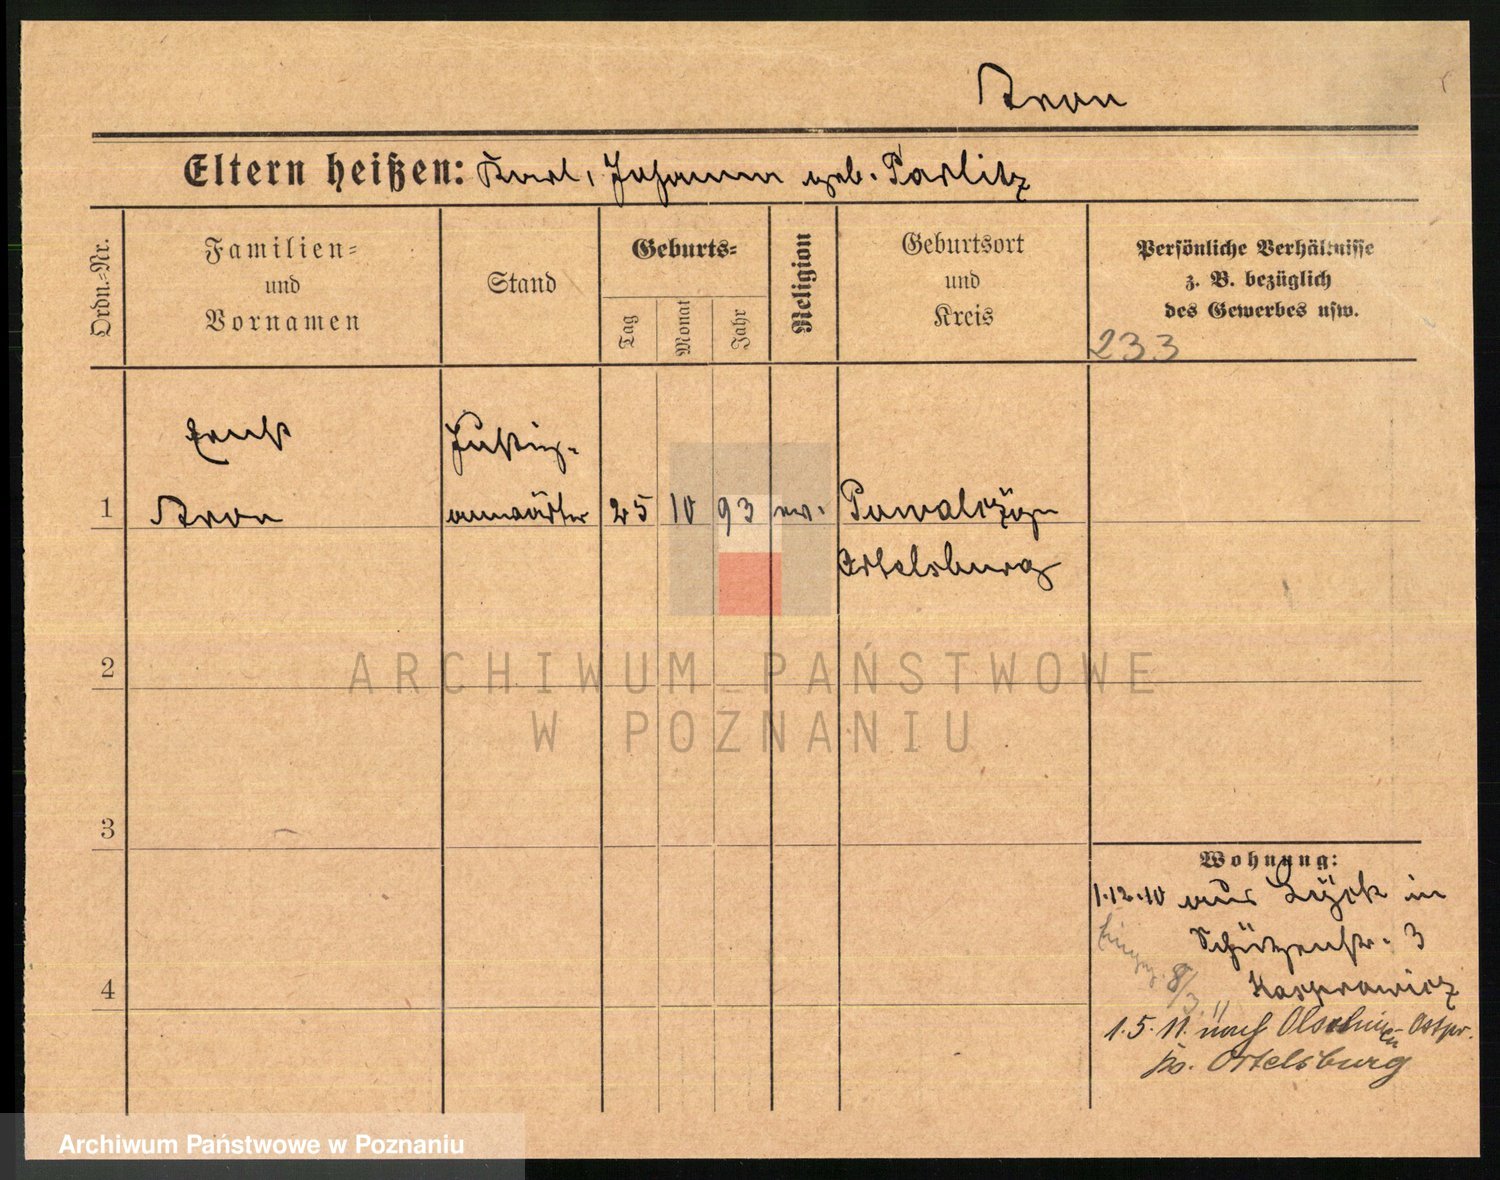 Kron
Eltern heißen: Karl, Johanna geb. Parlitz
Ordn.-Nr.
Familien-
und
Vornamen
Stand
Geburts-
Tag
Monat
Jahr
Religion
Geburtsort
und
Kreis
Persönliche Verhältnisse
z. B. bezüglich
des Gewerbes usw.
233
Ernst
Justiz-
1 Kron anwärter 25 10 93 ev.
Ortelsburg
2
ARCHIWUM PAŃSTWOWE
W POZNANIU
3
Wohnung:
1.12.10 aus Lyck in
Schützenstr. 3
8/3. 11
Kasprowicz
4
1.5.11. nach Ostpr.
Ortelsburg
Archiwum Państwowe w Poznaniu